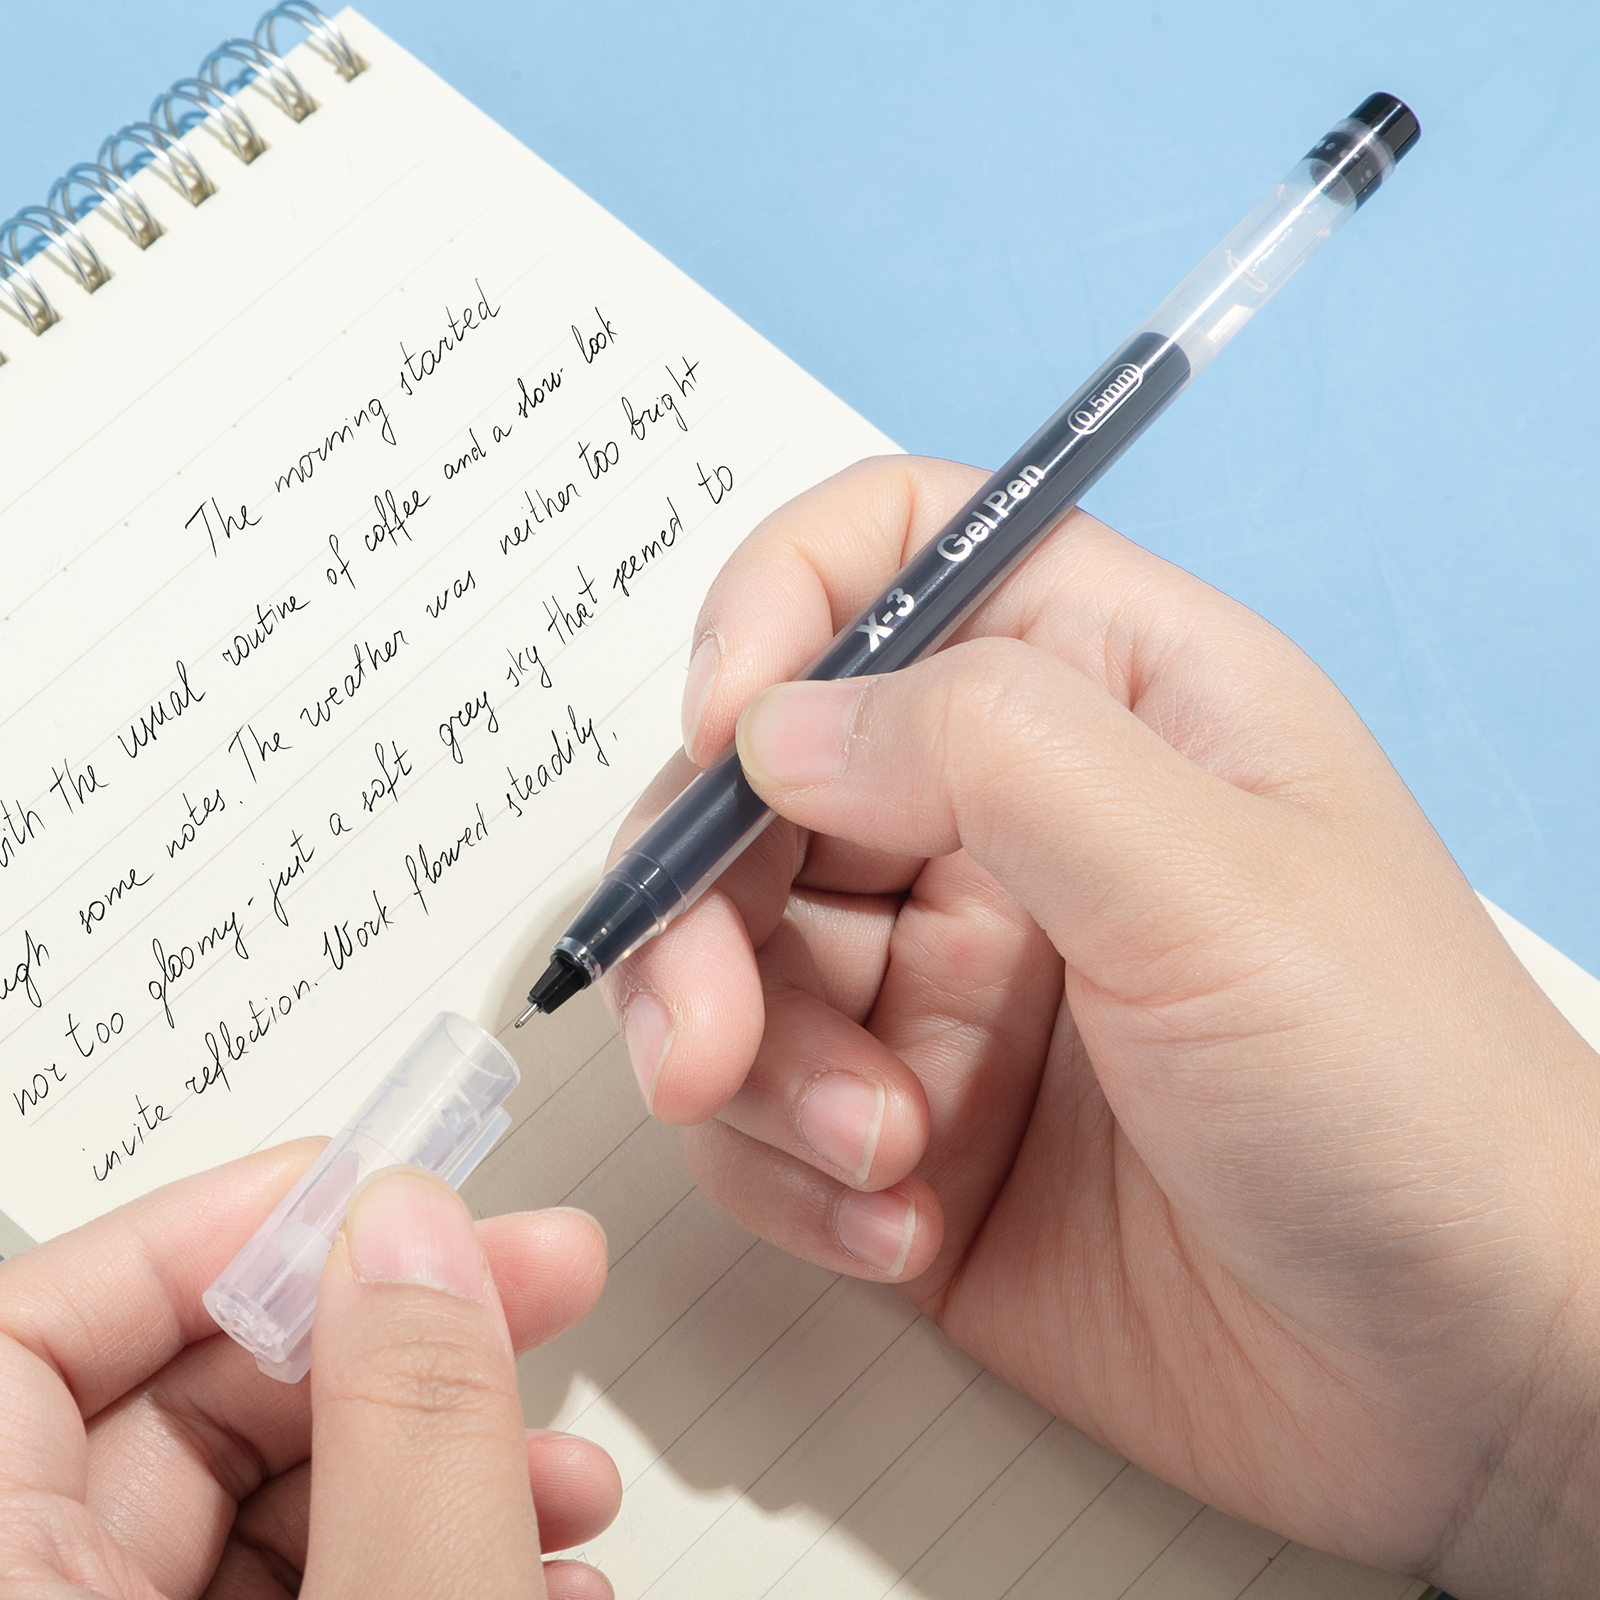 The morning started
with the usual routine of coffee and a slow look
some notes. The weather was neither too bright
nor too gloomy - just a soft grey sky that seemed to
invite reflection. Work flowed steadily,
X-3 Gel Pen 0.5mm